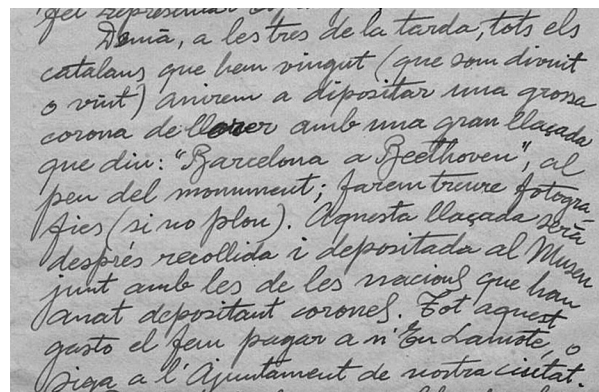 fer representar
Demà, a les tres de la tarda, tots els
catalans que hem vingut (que som divuit
o vint) anirem a dipositar una grossa
corona de llorer amb una gran llaçada
que diu: "Barcelona a Beethoven", al
peu del monument; farem treure fotogra-
fies (si no plou). Aquesta llaçada serà
després recollida i depositada al Museu
junt amb les de les nacions que han
anat depositant corones. Tot aquest
gasto el fem pagar a n'En Lamote, o
siga a l'Ajuntament de nostra ciutat.